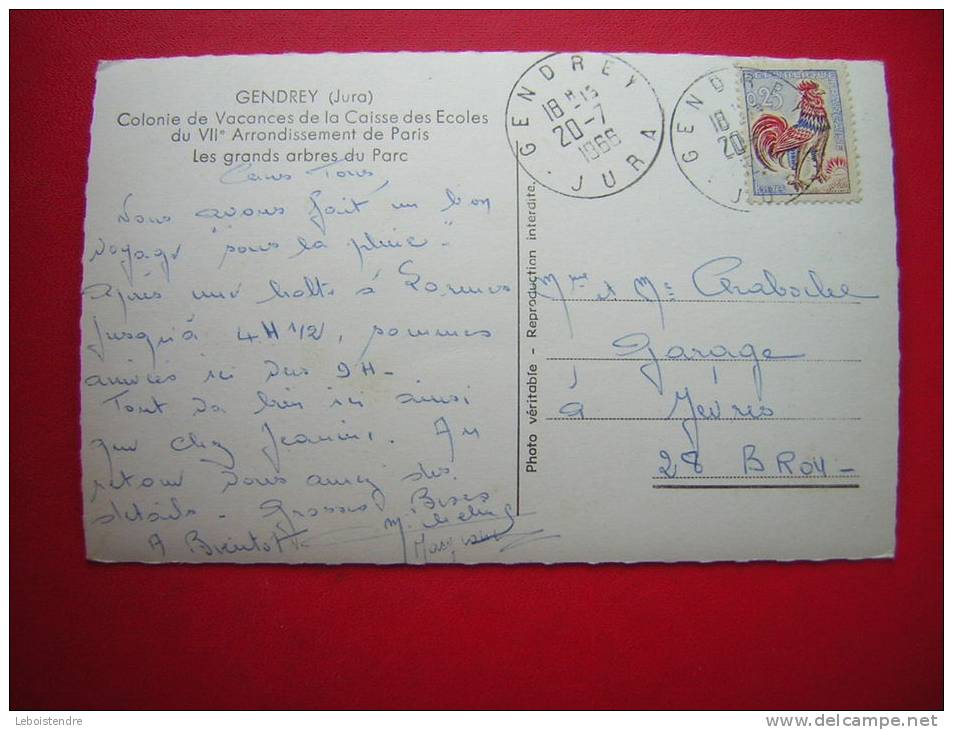 GENDREY (Jura)
Colonie de Vacances de la Caisse des Ecoles
du VIIe Arrondissement de Paris
Les grands arbres du Parc
Tous
Vous avons fait un bon
voyage "sous la pluie".
Après une halte à
jusqu'à 4H 1/2, sommes
arrivés ici vers 9H-
Tout va bien ici ainsi
que chez Jeanine. Au
retour vous aurez des
détails - Grosses Bises
A Bientôt
Photo véritable - Reproduction interdite.
GENDREY
18H-15
20-7
1966
JURA
GENDRE
18
20
JU
0,25
Mme et Mr
Garage
à
28 BROU-
Leboistendre
www.delcampe.net